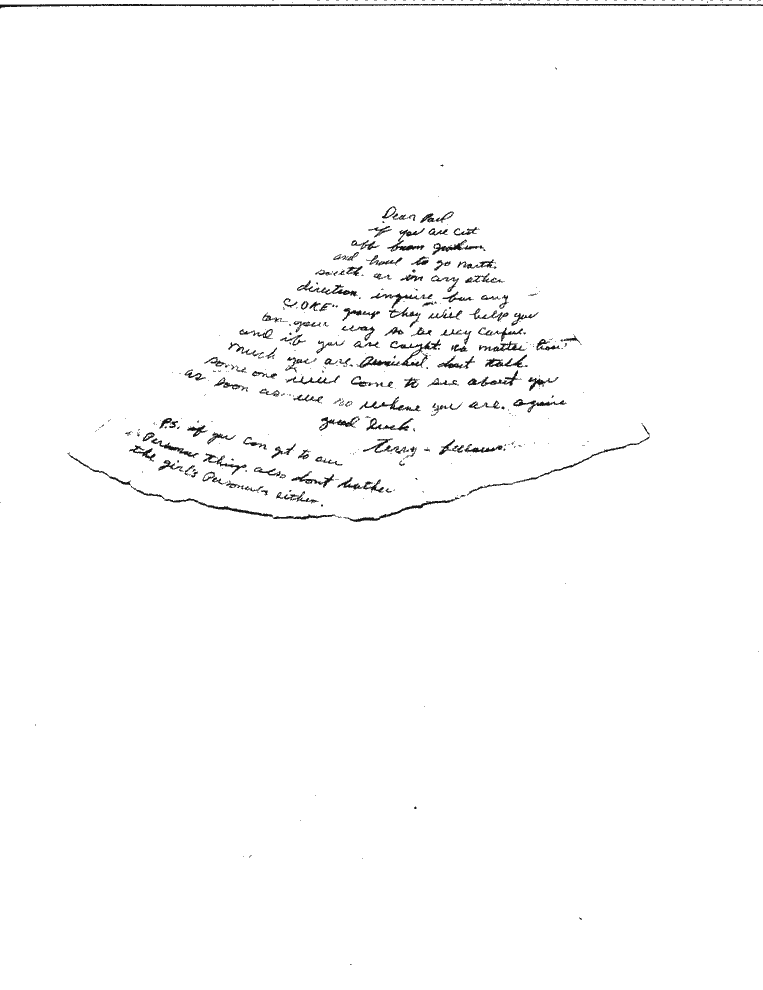 Dear Paul
if you are cut
off from
and have to go north.
south. or in any other
direction. inquire for any
"C.ORE" group they will help you
on your way so be very carful.
and if you are caught. no matter how
much you are Punished. dont talk.
some one will come to see about you
as soon as we no where you are. againe
good luck.
Terry -
P.S. if you can get to our
Personal things. also dont bother
the girl's Personals either.